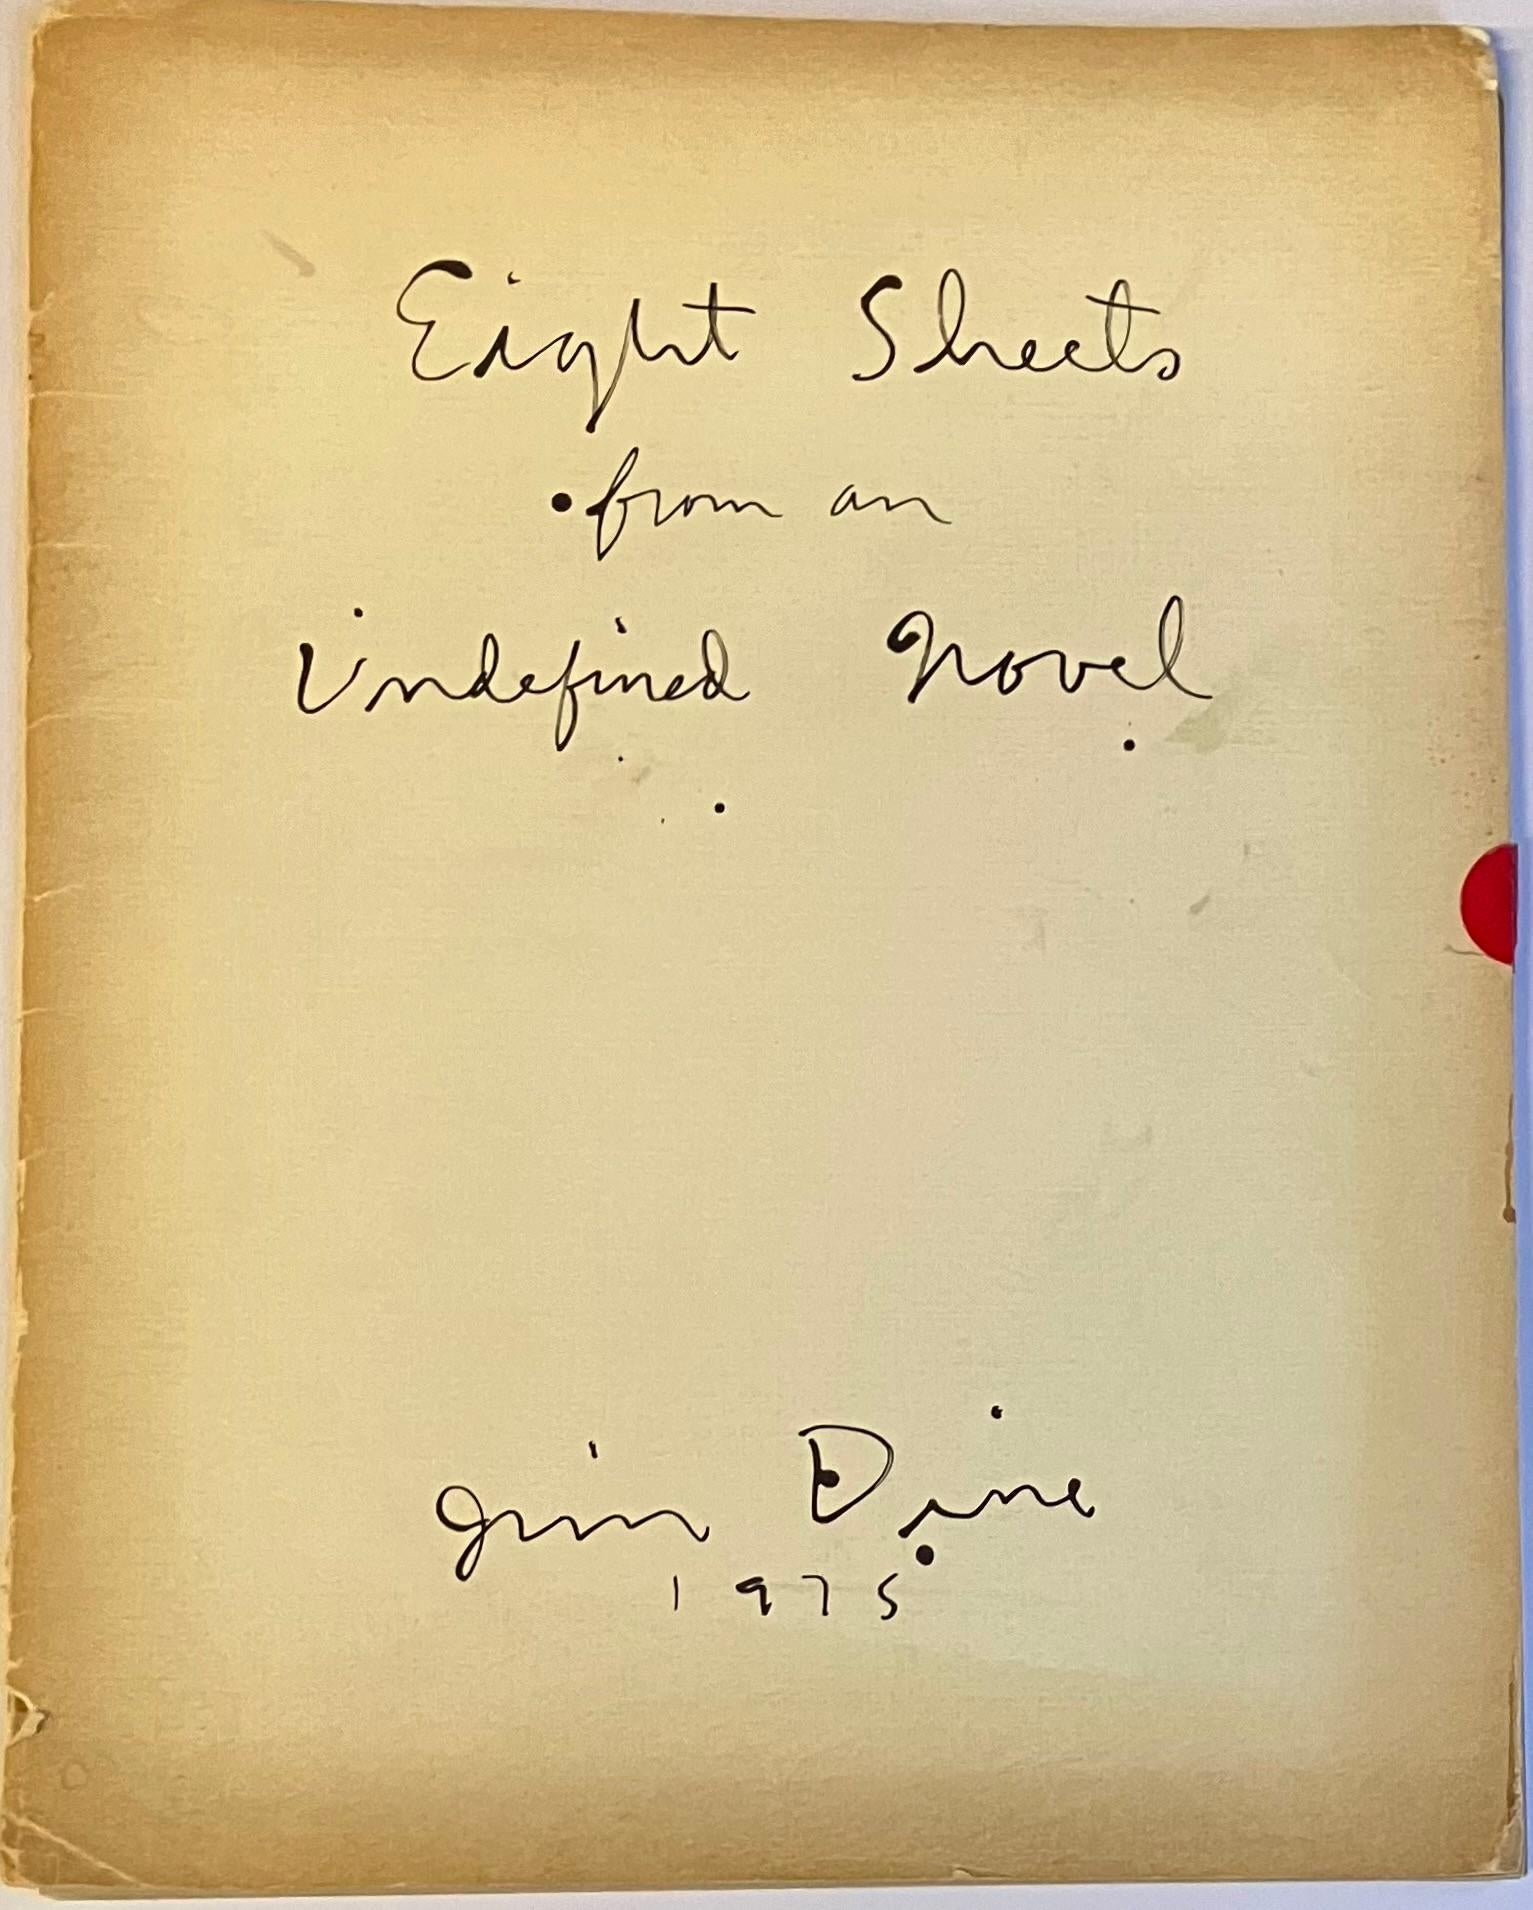 Eight Sheets
from an
Undefined Novel
Jim Dine
1975